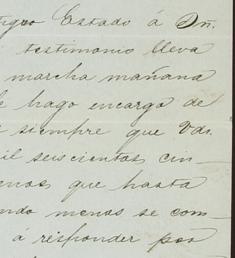 tiguo Estado á Dn.
testimonio lleva
marcha mañana
hago encargo de
siempre que Vds.
mil seiscientos cin-
menos que hasta
ando menos se com-
á responder por